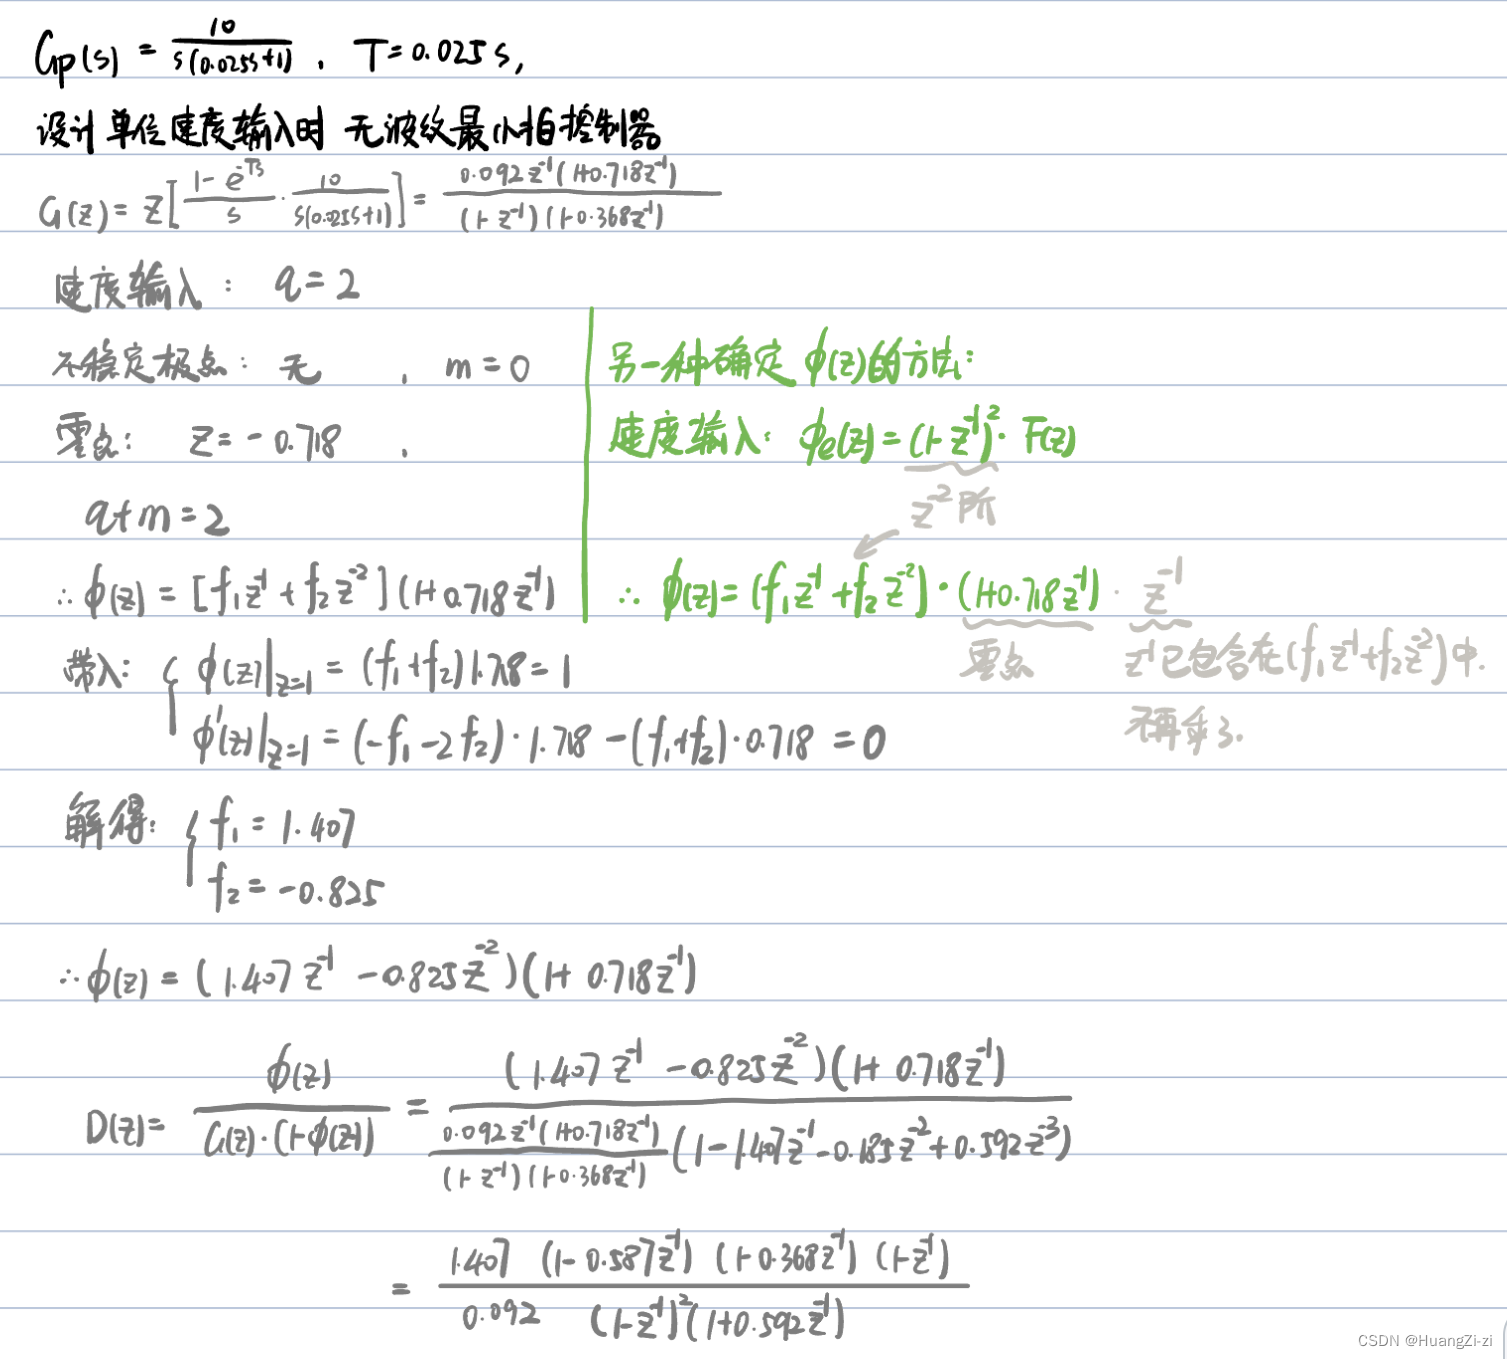 Gp(s) = 10/(s(0.025s+1)) , T=0.025s,
设计单位速度输入时 无波纹最小拍控制器
G(z)= Z[(1-e^{-Ts})/s · 10/(s(0.025s+1))] = 0.092z⁻¹(1+0.718z⁻¹)/((1-z⁻¹)(1-0.368z⁻¹))
速度输入: q=2
不稳定极点: 无 , m=0
零点: z=-0.718 ,
q+m=2
∴ φ(z) = [f₁z⁻¹+f₂z⁻²](1+0.718z⁻¹)
另一种确定φ(z)的方法:
速度输入: φe(z)=(1-z⁻¹)²·F(z)
z⁻²阶
∴ φ(z)=(f₁z⁻¹+f₂z⁻²)·(1+0.718z⁻¹)·z⁻¹
零点
z⁻¹已包含在(f₁z⁻¹+f₂z⁻²)中.
不再乘了.
带入: { φ(z)|z=1 = (f₁+f₂)1.718=1
φ'(z)|z=1 = (-f₁-2f₂)·1.718-(f₁+f₂)·0.718=0
解得: { f₁=1.407
f₂=-0.825
∴φ(z)=(1.407z⁻¹-0.825z⁻²)(1+0.718z⁻¹)
D(z)= φ(z)/(G(z)·(1-φ(z))) = (1.407z⁻¹-0.825z⁻²)(1+0.718z⁻¹)/(0.092z⁻¹(1+0.718z⁻¹)/((1-z⁻¹)(1-0.368z⁻¹)) (1-1.407z⁻¹-0.185z⁻²+0.592z⁻³))
= 1.407 (1-0.587z⁻¹)(1-0.368z⁻¹)(1-z⁻¹)/(0.092 (1-z⁻¹)²(1+0.592z⁻¹))
CSDN @HuangZi-zi